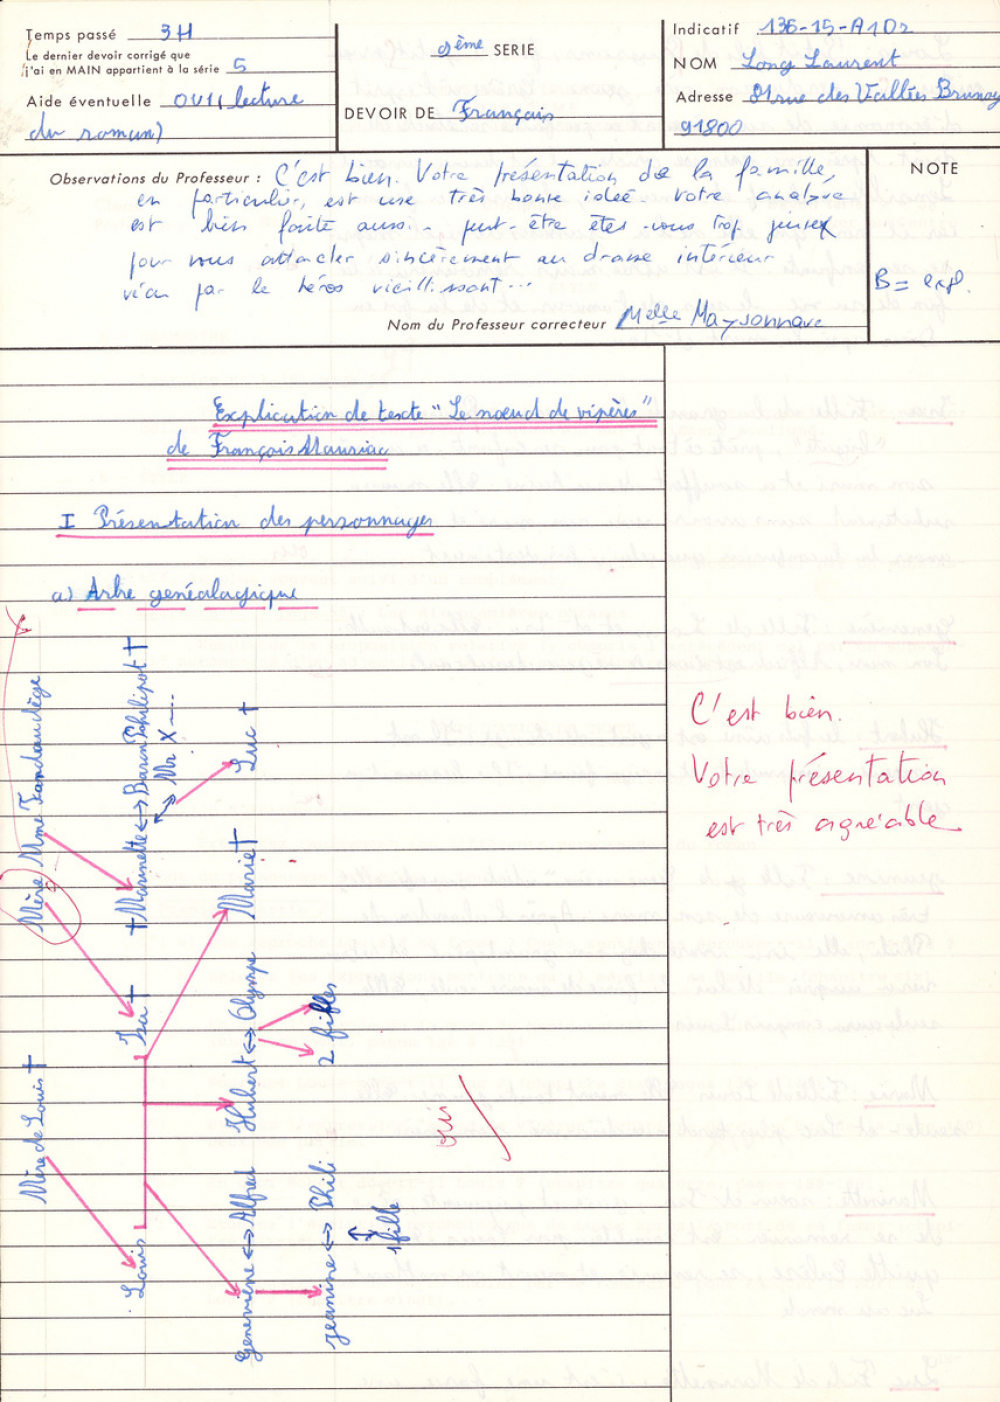 Temps passé 3H
Le dernier devoir corrigé que
j'ai en MAIN appartient à la série 5
Aide éventuelle OUI (lecture
du roman)
9ème SERIE
DEVOIR DE Français
Indicatif 136-15-A1D2
NOM Long Laurent
Adresse 91 rue des Vallées Brunoy
91800
Observations du Professeur : C'est bien. Votre présentation de la famille,
en particulier, est une très bonne idée. Votre analyse
est bien faite aussi - peut-être êtes-vous trop jeune
pour vous attacher sincèrement au drame intérieur
vécu par le héros vieillissant...
Nom du Professeur correcteur Melle Maysonnave
NOTE
B = exp.
Explication de texte "Le noeud de vipères"
de François Mauriac
I Présentation des personnages
a) Arbre généalogique
Mère de Louis † Mère Mme Fondaudège
Louis Isa † † Marinette <-> Baron Philipot †
Mr X ....
Geneviève <-> Alfred Hubert <-> Olympe Marie † Luc †
Jeanine <-> Phili 2 filles
1 fille
oui
C'est bien.
Votre présentation
est très agréable